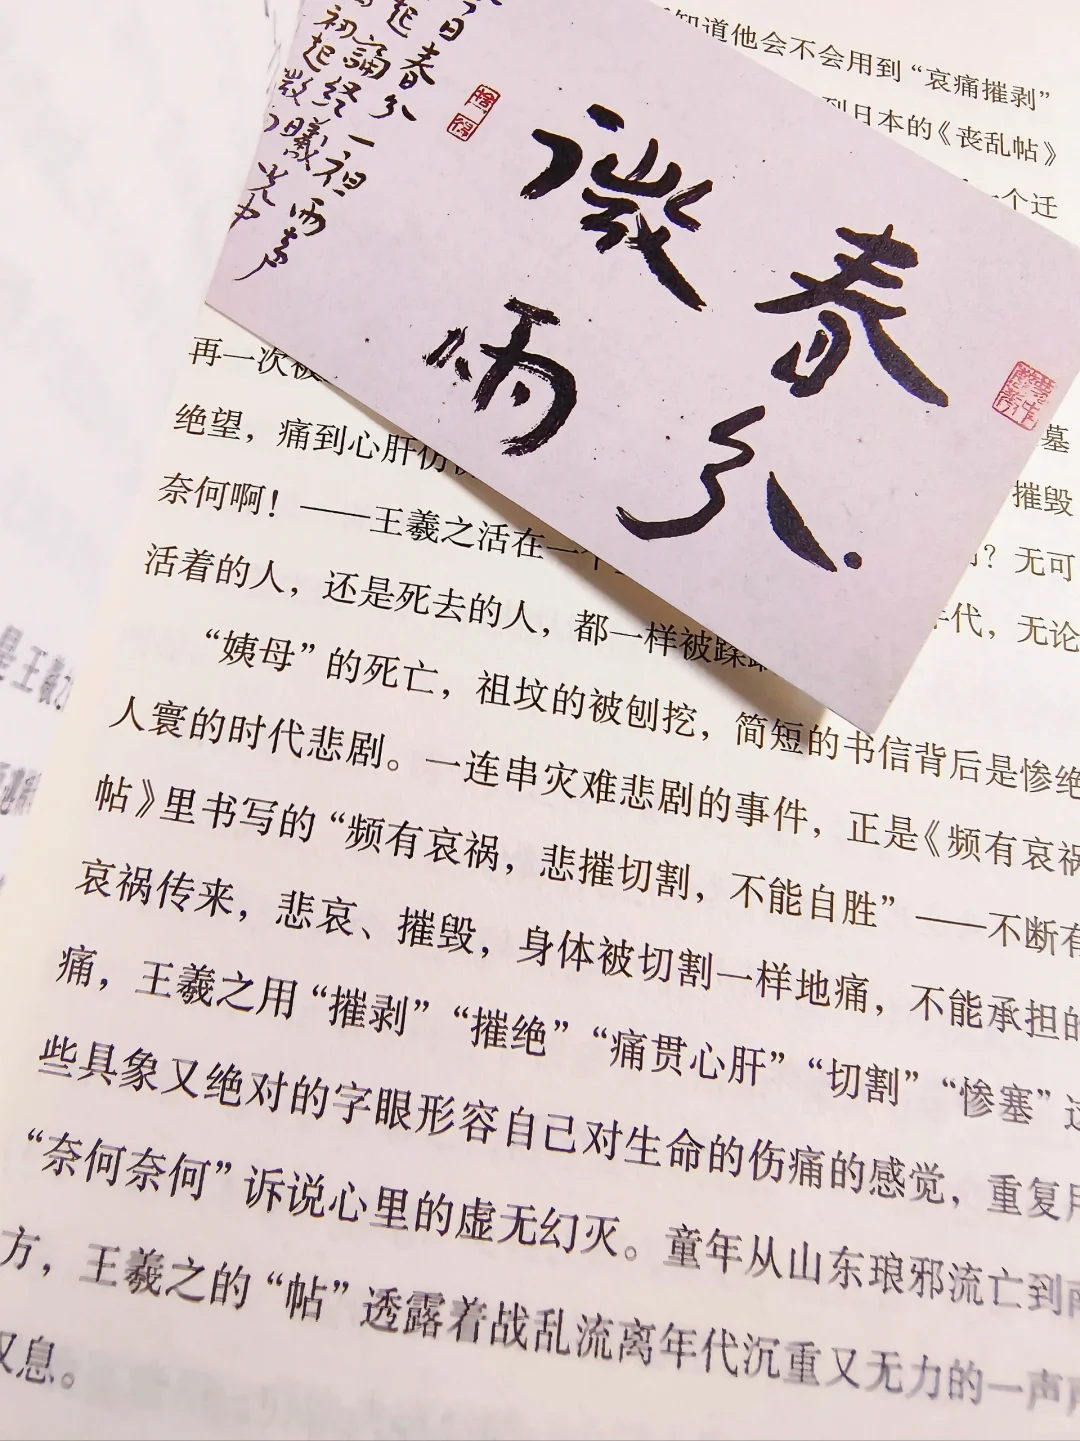 知道他会不会用到“哀痛摧剥”
到日本的《丧乱帖》
一个迁
春分
微雨
今日春分
诵经一
初起
雨声
微曦
捨得
再一次被
墓
绝望，痛到心肝仿
摧毁
奈何啊！——王羲之活在一个
？无可
活着的人，还是死去的人，都一样被蹂
年代，无论
“姨母”的死亡，祖坟的被刨挖，简短的书信背后是惨绝
人寰的时代悲剧。一连串灾难悲剧的事件，正是《频有哀祸
帖》里书写的“频有哀祸，悲摧切割，不能自胜”——不断有
哀祸传来，悲哀、摧毁，身体被切割一样地痛，不能承担的
痛，王羲之用“摧剥”“摧绝”“痛贯心肝”“切割”“惨塞”这
些具象又绝对的字眼形容自己对生命的伤痛的感觉，重复用
“奈何奈何”诉说心里的虚无幻灭。童年从山东琅邪流亡到南
方，王羲之的“帖”透露着战乱流离年代沉重又无力的一声声
叹息。
是王羲之